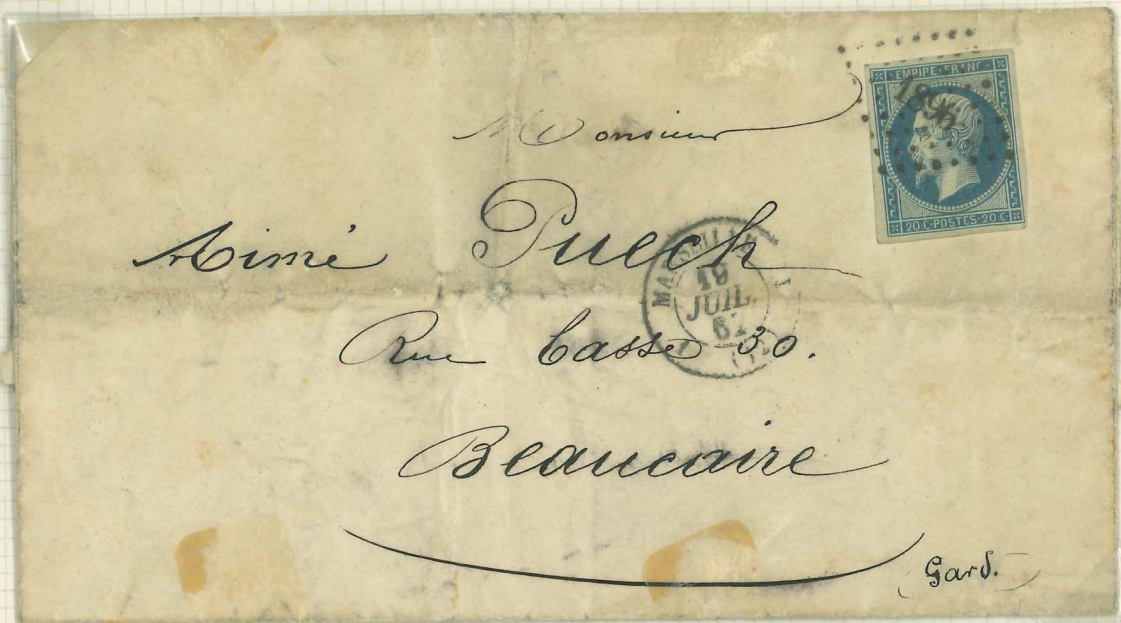 EMPIRE FRANC
1896
20 C·POSTES·20 C
Monsieur
Aimé Puech
MARSEILLE
19
JUIL.
62
Rue Basse 30.
Beaucaire
Gard.